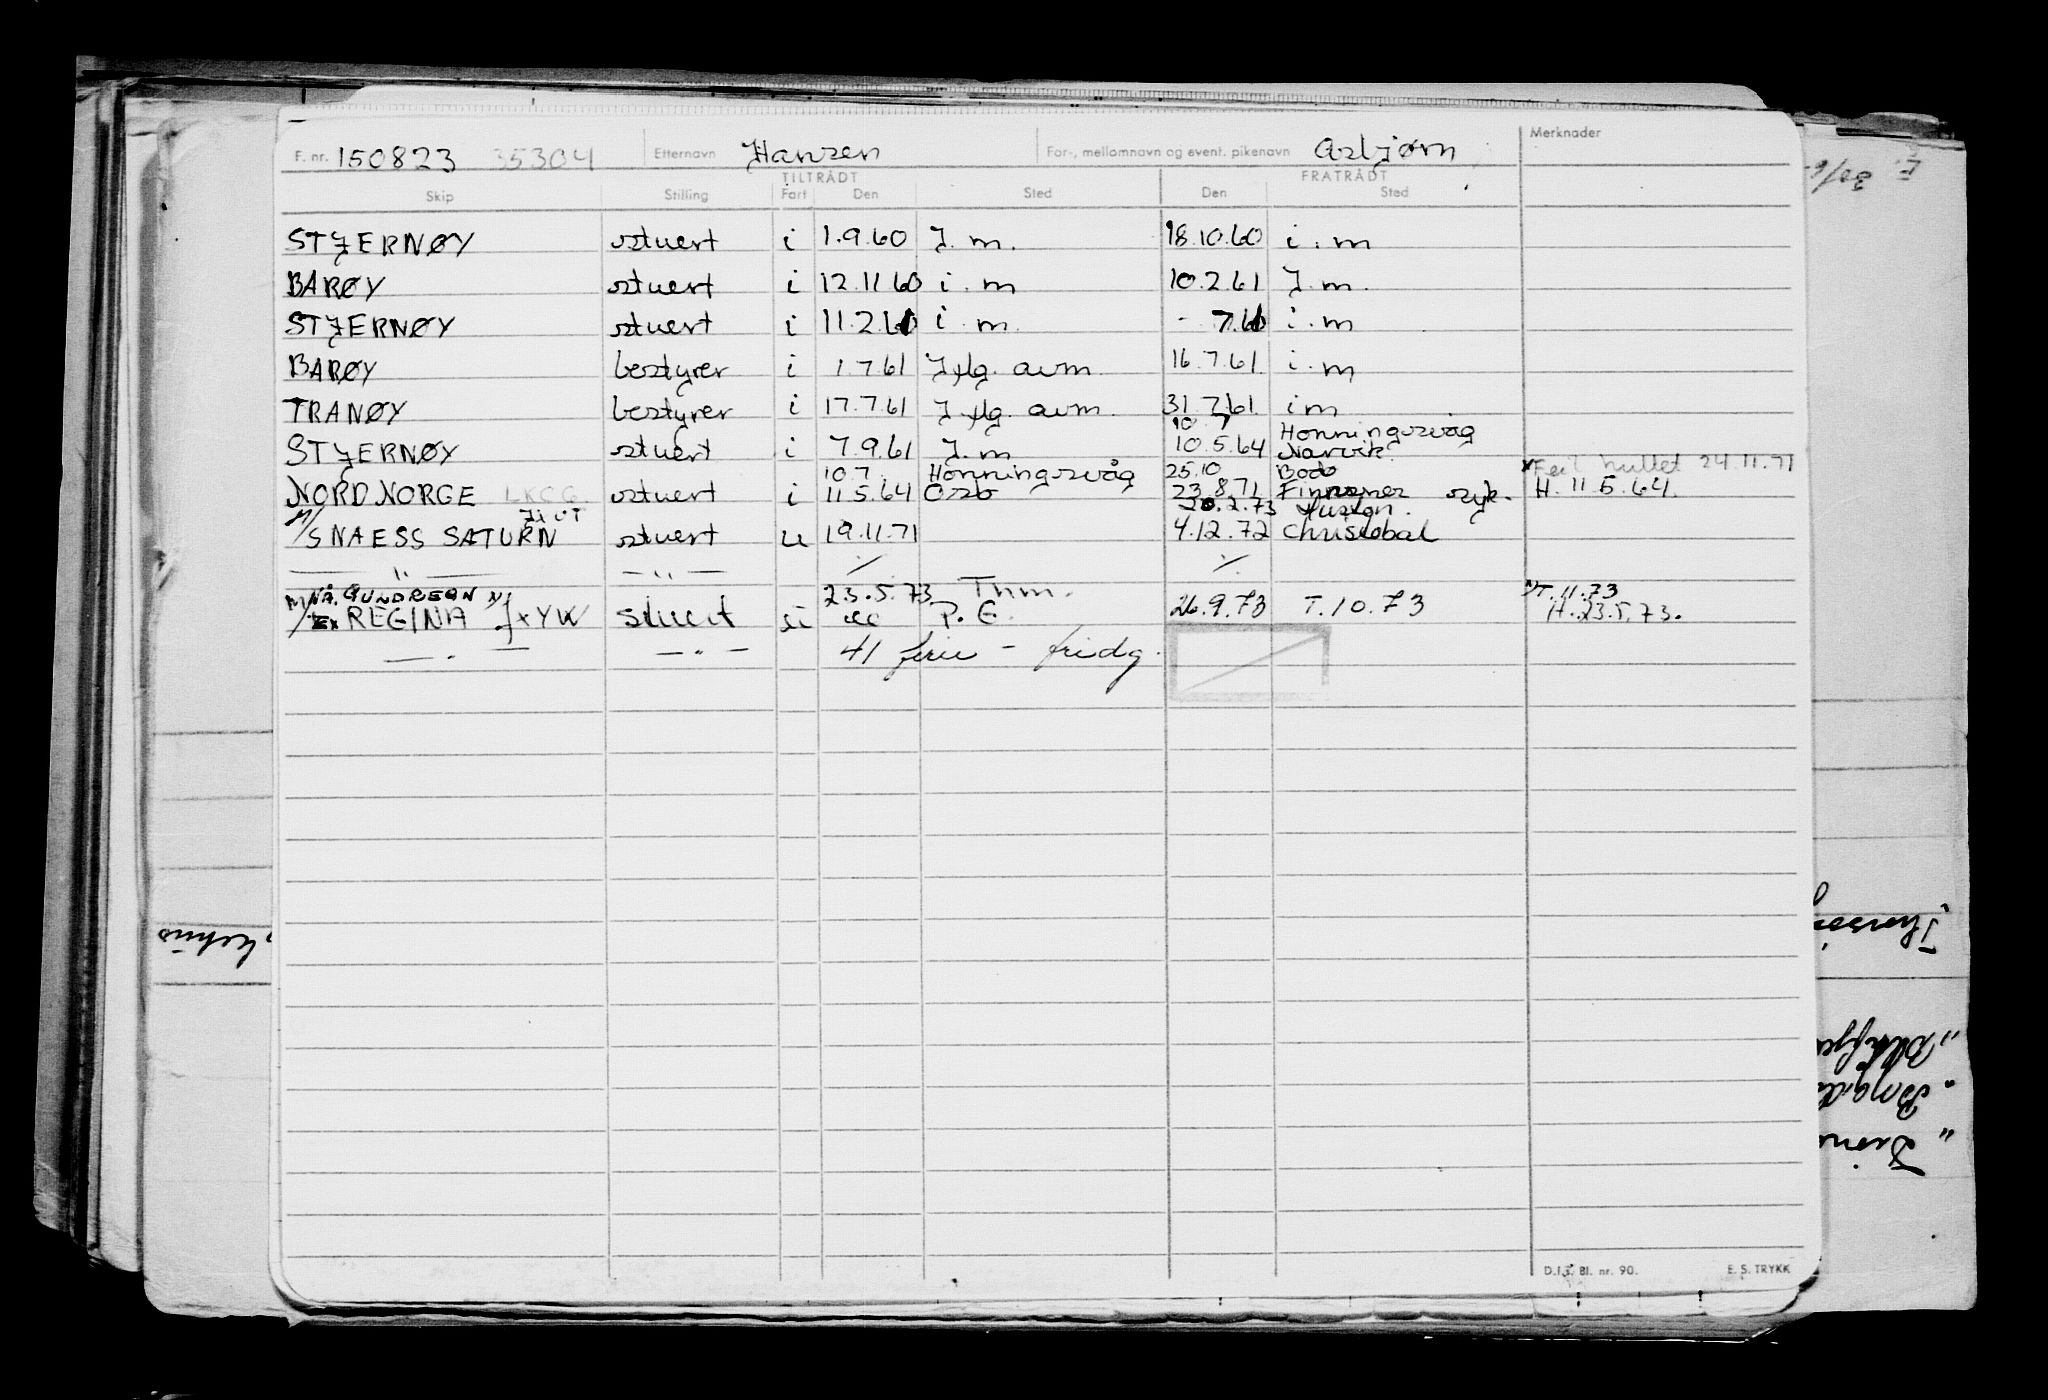 F. nr. 150823 35304 Etternavn Hansen For-, mellomnavn og event. pikenavn Asbjørn Merknader
TILTRÅDT FRATRÅDT
Skip Stilling Fart Den Sted Den Sted
STJERNØY stuert i 1.9.60 I.m. 18.10.60 i.m
BARØY stuert i 12.11.60 i.m 10.2.61 I.m.
STJERNØY stuert i 11.2.61 i.m. - 7.61 i.m
BARØY bestyrer i 1.7.61 Iflg. avm. 16.7.61 i.m
TRANØY bestyrer i 17.7.61 Iflg. avm. 31.7.61 im
10.7 Honningsvåg
STJERNØY stuert i 7.9.61 I.m 10.5.64 Narvik.
10.7. Honningsvåg 25.10 Bodø Feil hullet 24.11.71
NORD NORGE LKCG stuert i 11.5.64 Oslo 23.8.71 Finnsnes syk. H. 11.5.64.
20.2.73
M/S NAESS SATURN stuert u 19.11.71 4.12.72 Christobal
— " — — " — ⁒ ⁒
NÅ. GUNDREGN 23.5.73 Thm. T.11.73
M/ Ex REGINA JXYW stuert u P.G. 26.9.73 T.10.73 H.23.5.73.
— " — — " — 41 ferie - fridg.
D.I.S. Bl. nr. 90. E. S. TRYKK